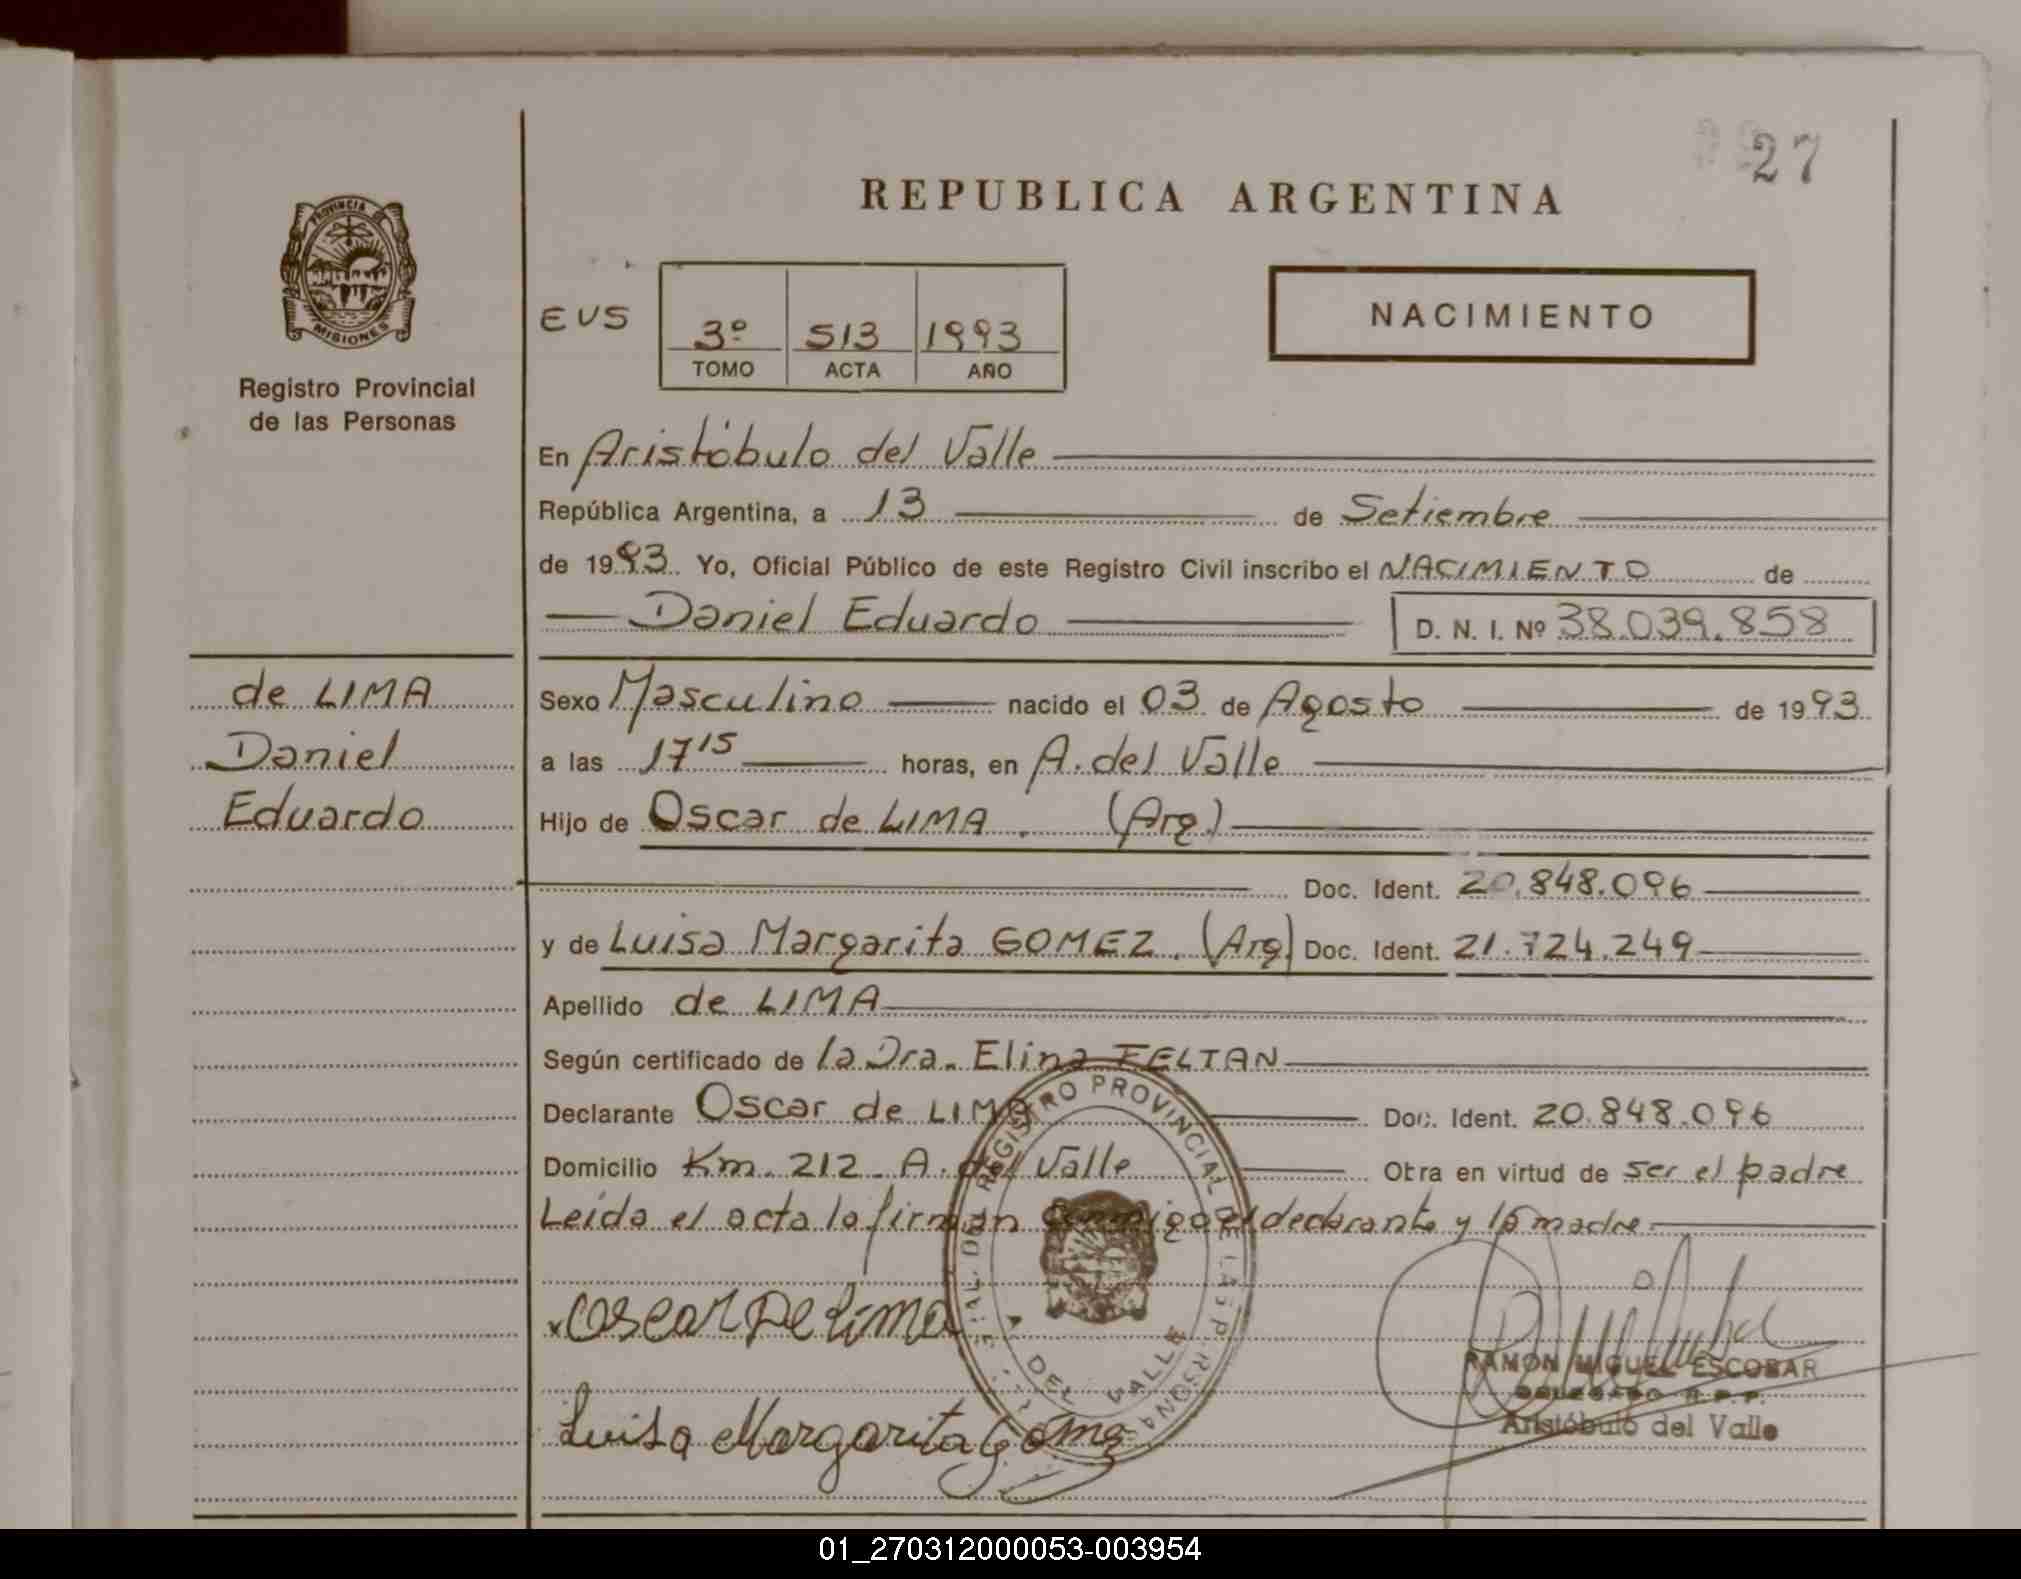 27
REPUBLICA ARGENTINA
PROVINCIA DE
MISIONES
Registro Provincial
de las Personas
EUS
3º 513 1993
TOMO ACTA AÑO
NACIMIENTO
En Aristóbulo del Valle
República Argentina, a 13 de Setiembre
de 1993 Yo, Oficial Público de este Registro Civil inscribo el NACIMIENTO de
Daniel Eduardo D. N. I. Nº 38.039.858
de LIMA
Daniel
Eduardo
Sexo Masculino nacido el 03 de Agosto de 1993
a las 17 15 horas, en A. del Valle
Hijo de Oscar de LIMA. (Arg.)
Doc. Ident. 20.848.096
y de Luisa Margarita GOMEZ. (Arg) Doc. Ident. 21.724.249
Apellido de LIMA
Según certificado de la Dra. Elina FELTAN
Declarante Oscar de LIMA Doc. Ident. 20.848.096
Domicilio Km. 212. A. del Valle Obra en virtud de ser el padre
Leída el acta la firman conmigo el declarante y la madre.
REGISTRO PROVINCIAL DE LAS PERSONAS
DEL VALLE
Oscar De Lima
Luisa Margarita Gomez
RAMON MIGUEL ESCOBAR
DELEGADO R.P.P.
Aristóbulo del Valle
01_270312000053-003954